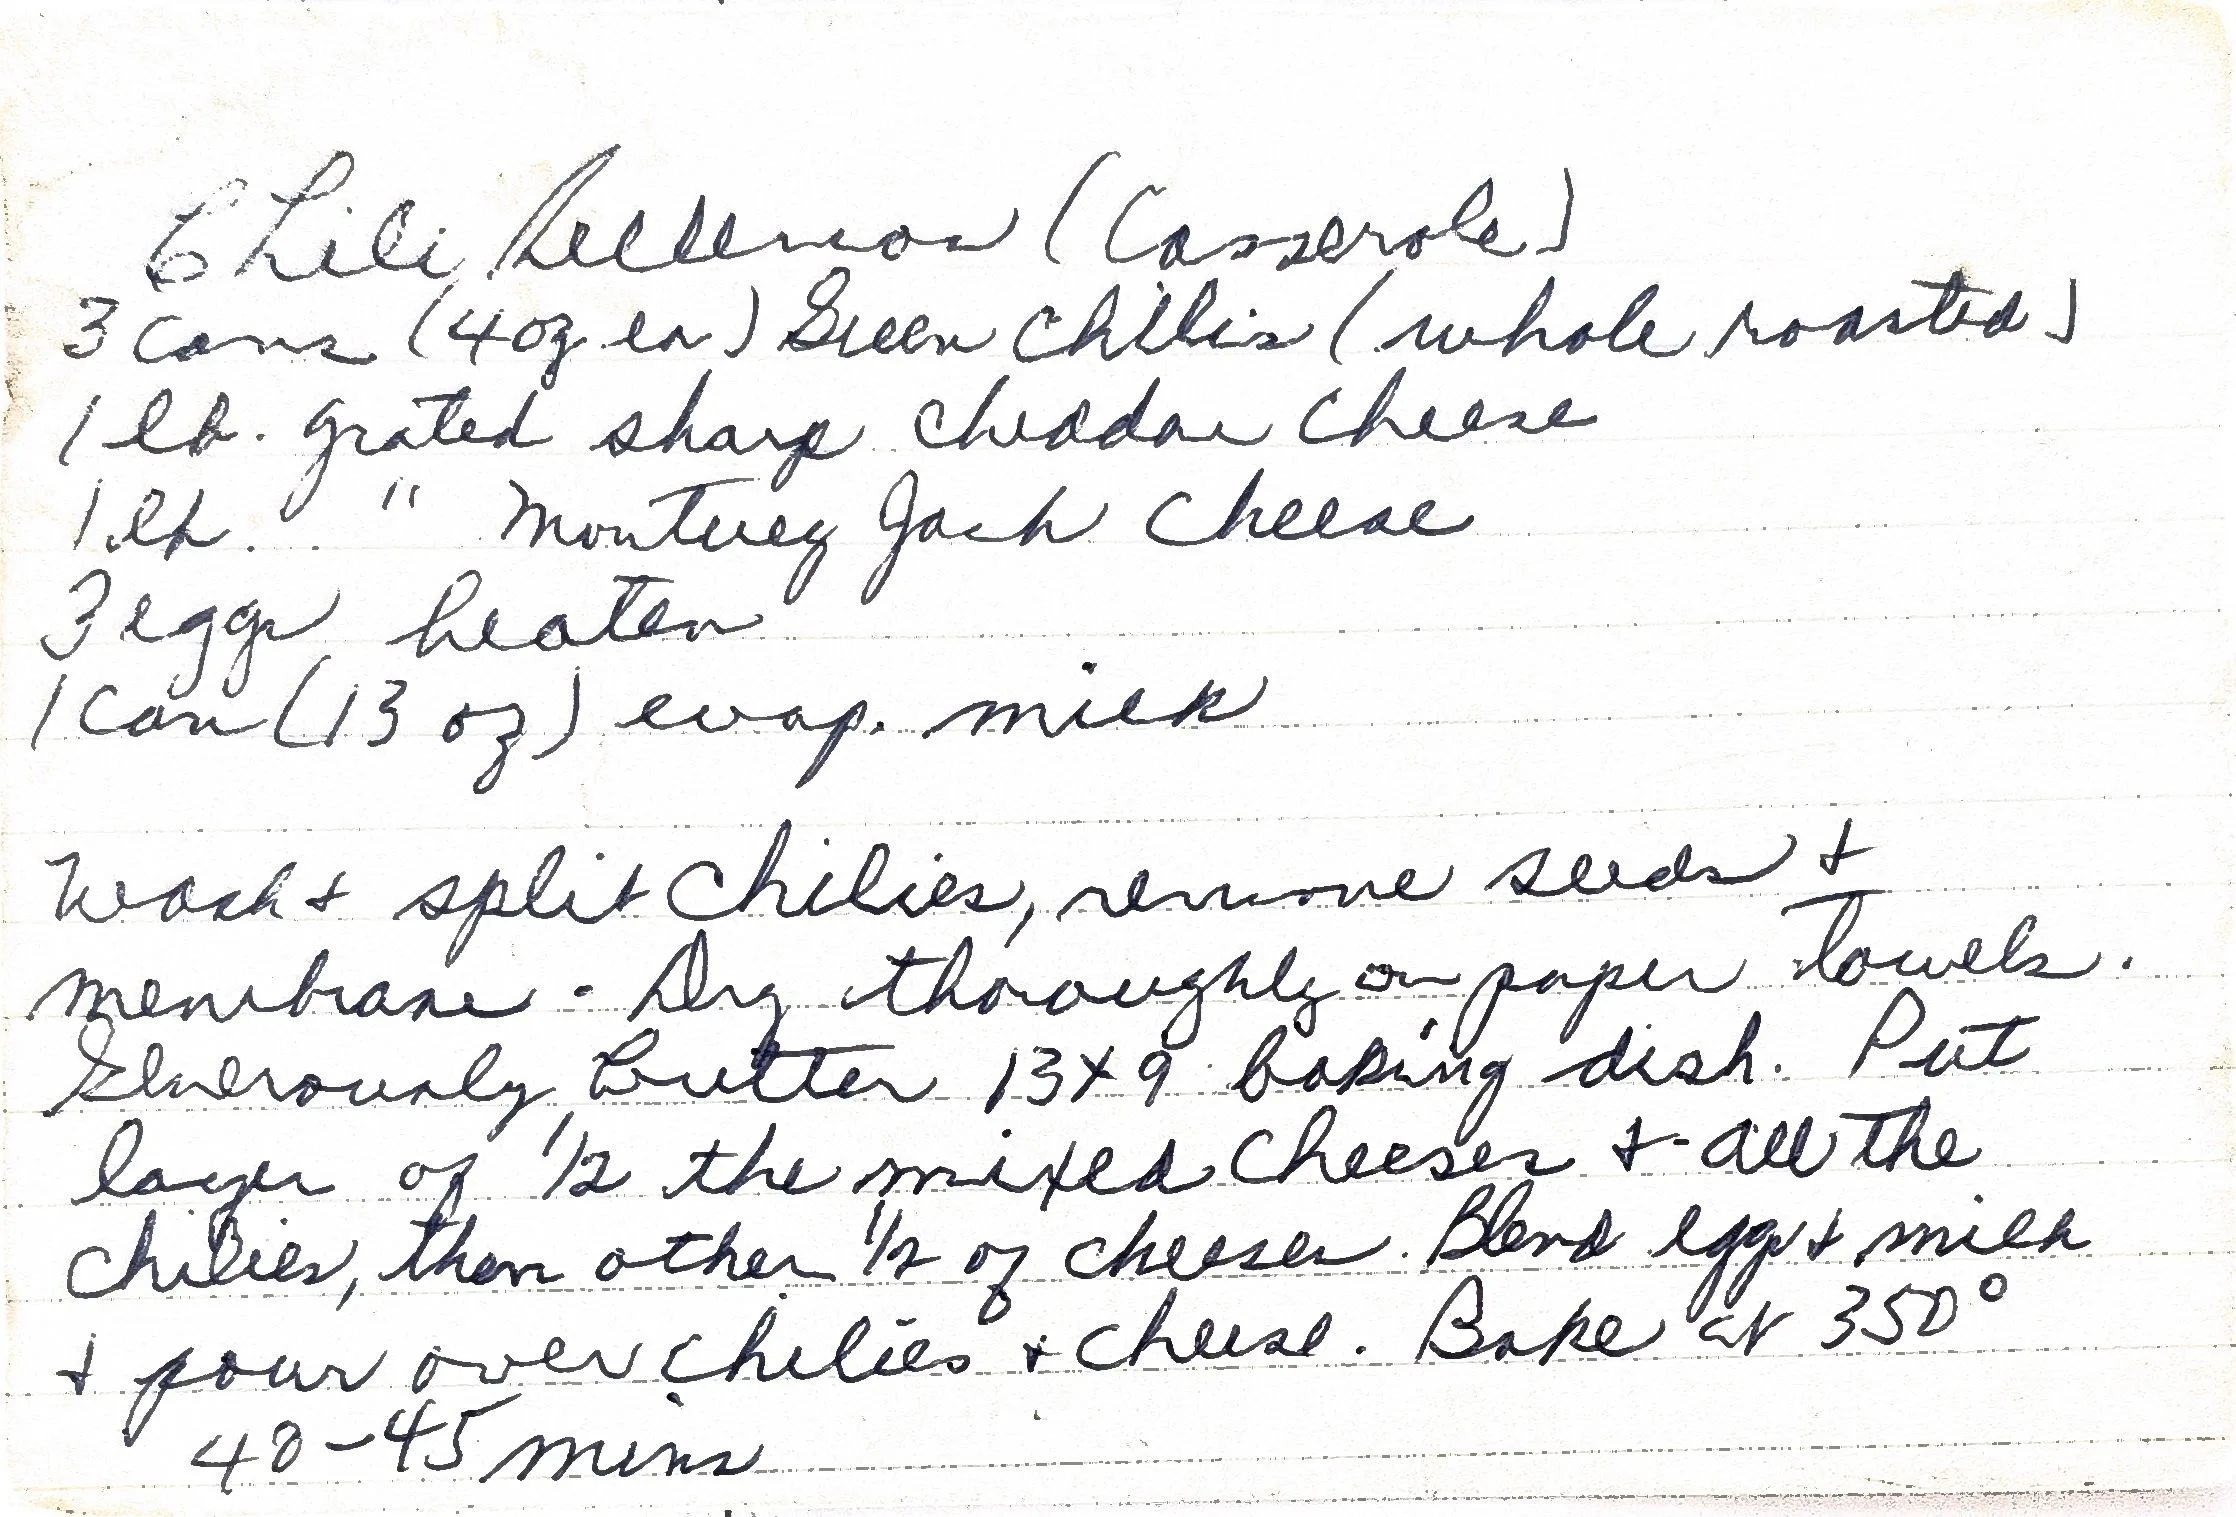 Chili Rellenos (Casserole)
3 cans (4 oz ea) Green Chilis (whole roasted)
1 lb. grated sharp cheddar cheese
1 lb. " Monterey Jack cheese
3 eggs beaten
1 can (13 oz) evap. milk
Wash & split chilies, remove seeds &
membrane - Dry thoroughly on paper towels.
Generously butter 13x9 baking dish. Put
layer of 1/2 the mixed cheeses & all the
chilies, then other 1/2 of cheeses. Blend eggs & milk
& pour over chilies & cheese. Bake at 350°
40-45 mins